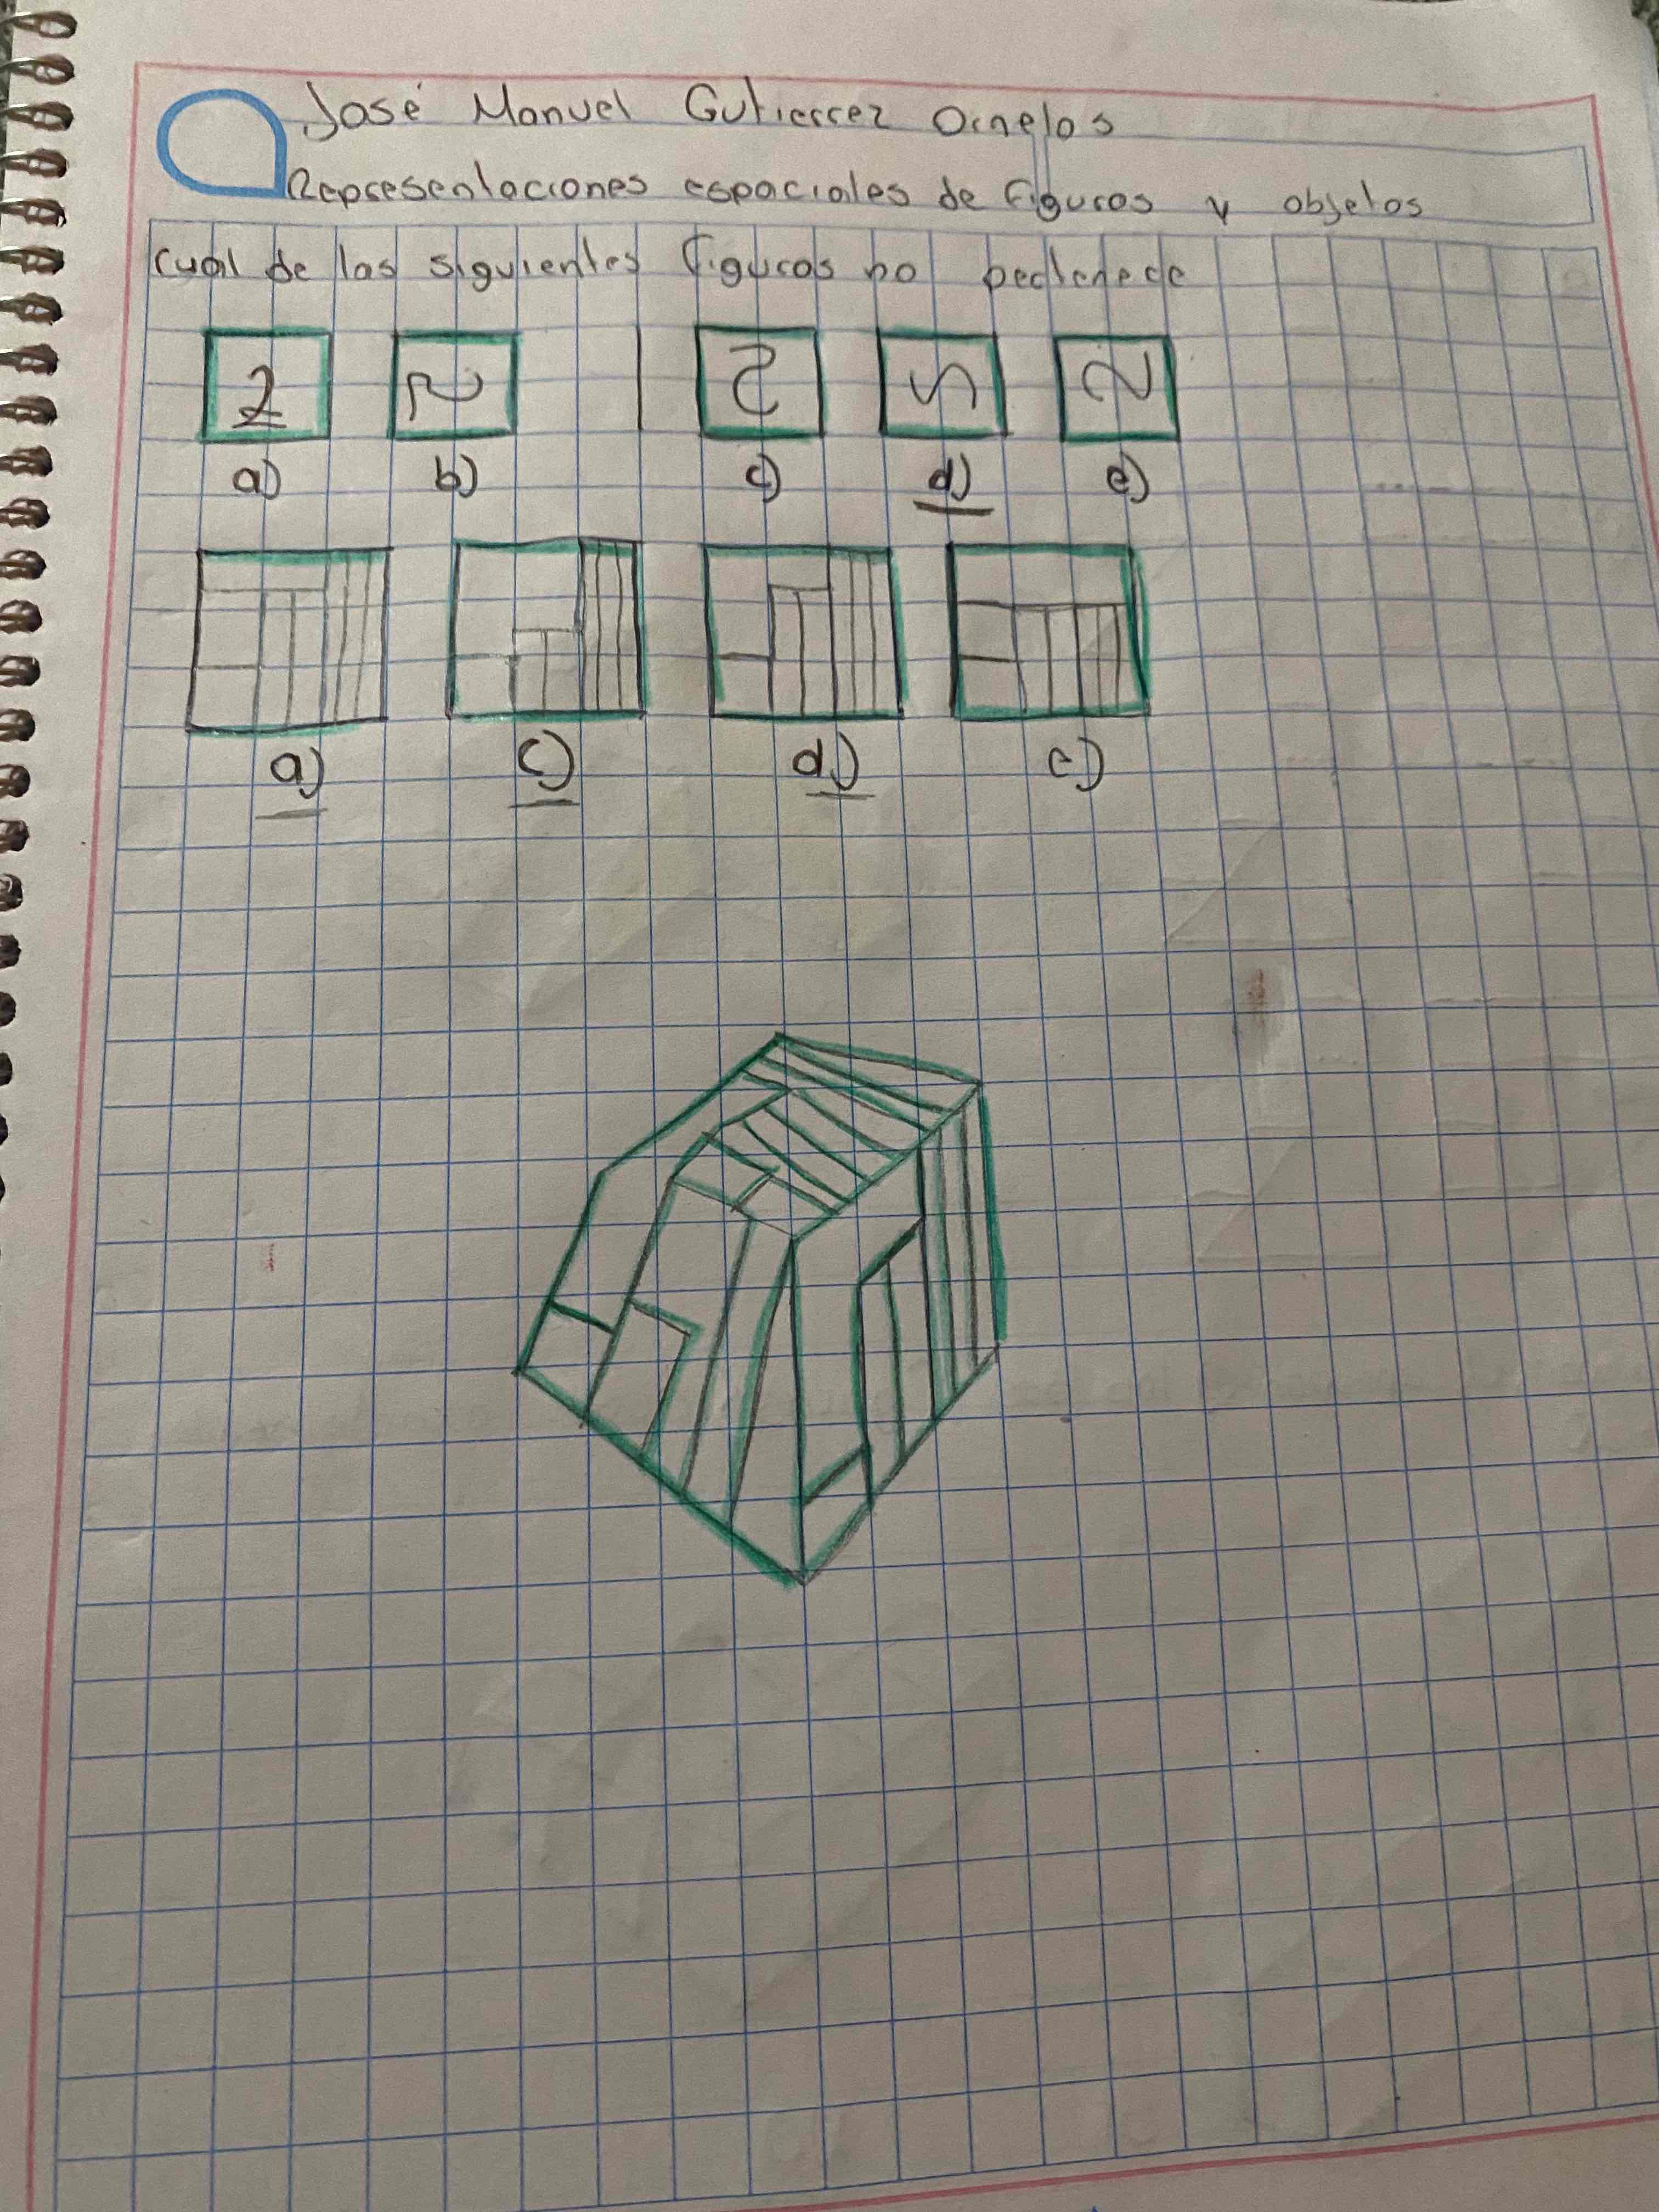 José Manuel Gutierrez Ornelas
Representaciones espaciales de figuras y objetos
cual de las siguientes figuras no pertenece
2 2 2 2 2
a) b) c) d) e)
a) c) d) e)